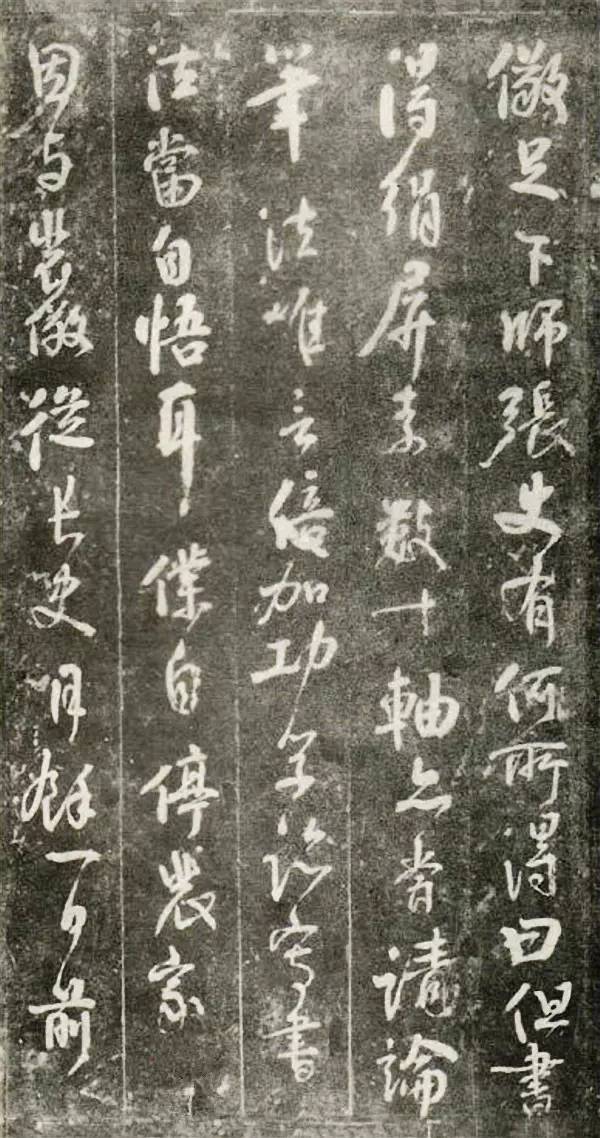 儆足下師張史有何所得曰但書
得絹屏素數十軸亦嘗請論
筆法唯言倍加功學臨寫書
法當自悟耳僕自停裴家
因与裴儆從長史月餘一日前